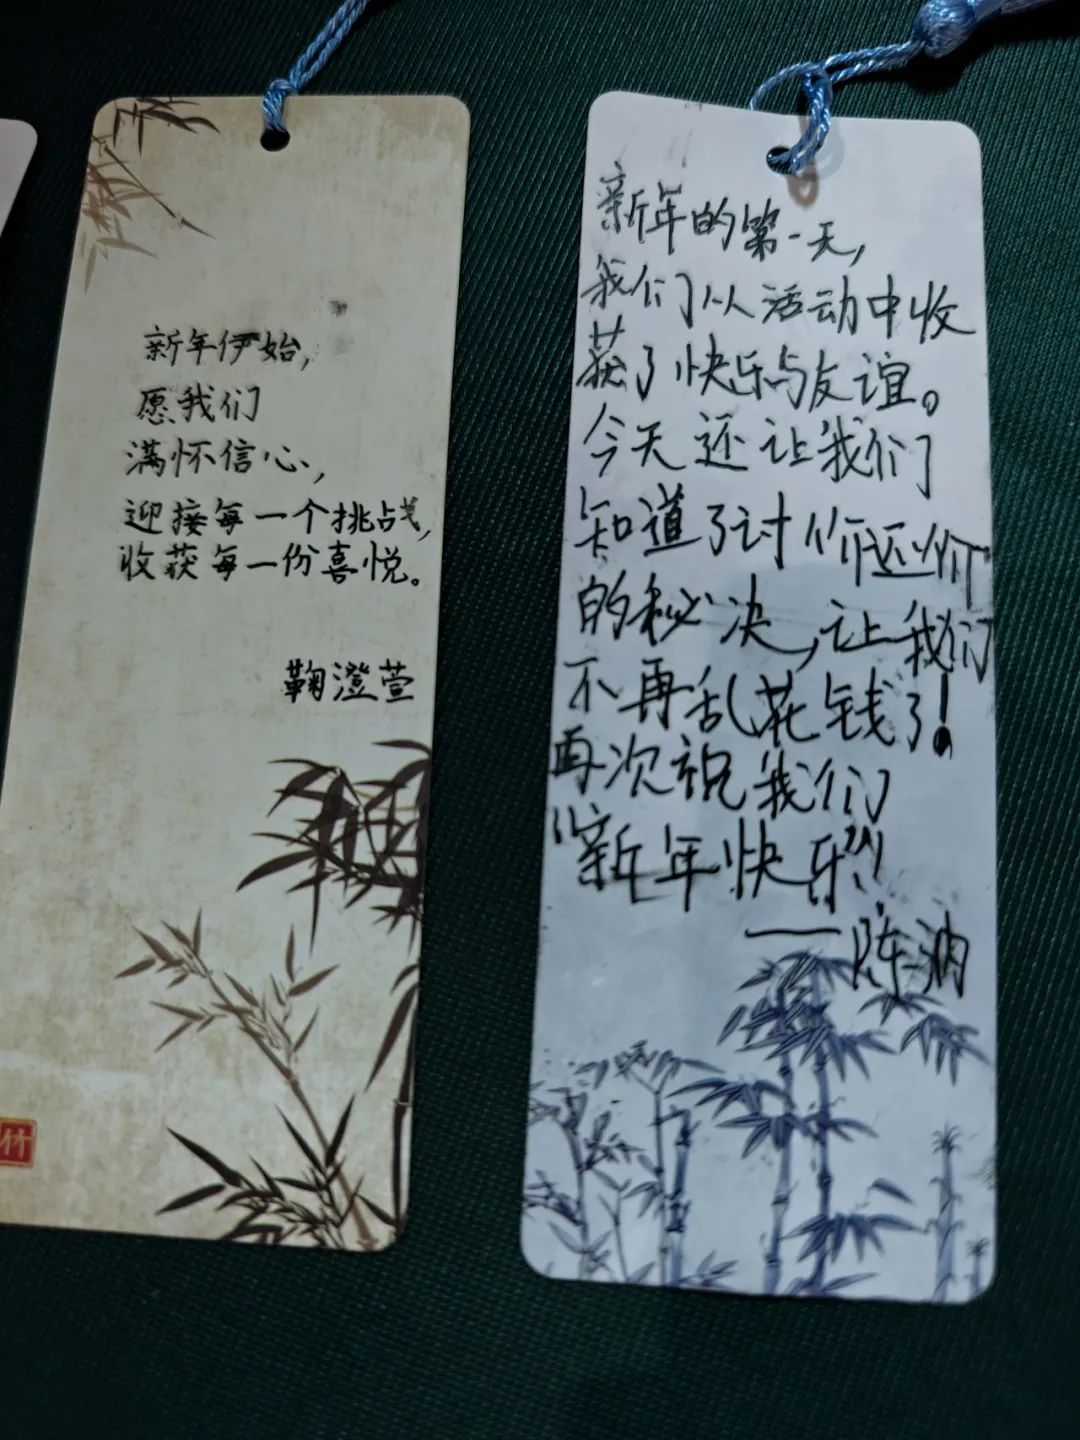 新年伊始，
愿我们
满怀信心，
迎接每一个挑战，
收获每一份喜悦。
鞠澄萱
竹
新年的第一天，
我们从活动中收
获了快乐与友谊。
今天还让我们
知道了讨价还价
的秘决，让我们
不再乱花钱了！
再次祝我们
“新年快乐”！
——陈汭